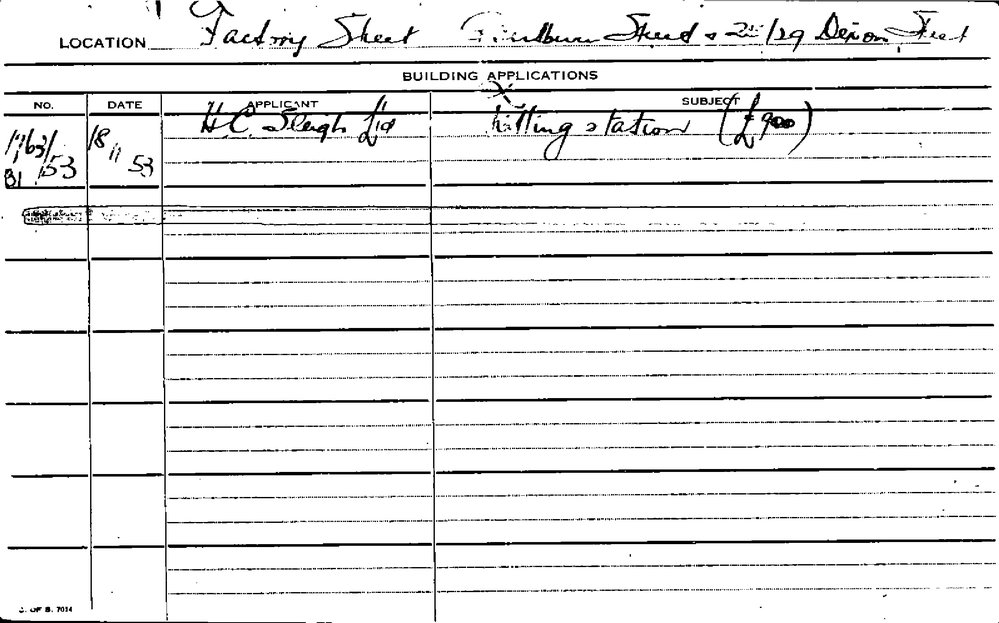 LOCATION Factory Street Street & /29 Devon Street
BUILDING APPLICATIONS
NO. DATE APPLICANT SUBJECT
1163/ 18 H.C. Sleigh Ltd filling station (£900)
81/53 11 53
C. OF B. 7014